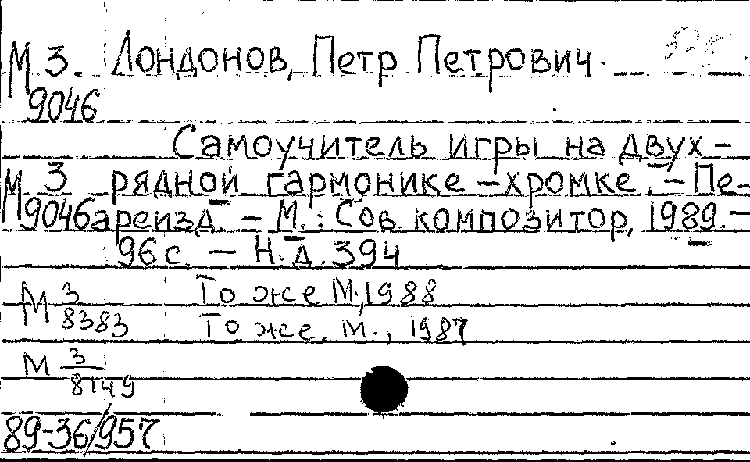 М 3. Лондонов, Петр Петрович.
9046
Самоучитель игры на двух-
М 3 рядной гармонике - хромке. - Пе-
9046а реизд. - М.: Сов. композитор, 1989. -
96 с. - Н. д. 394
М 3 То же М., 1988
8383 То же. М., 1987
М 3
8149
89-36/957